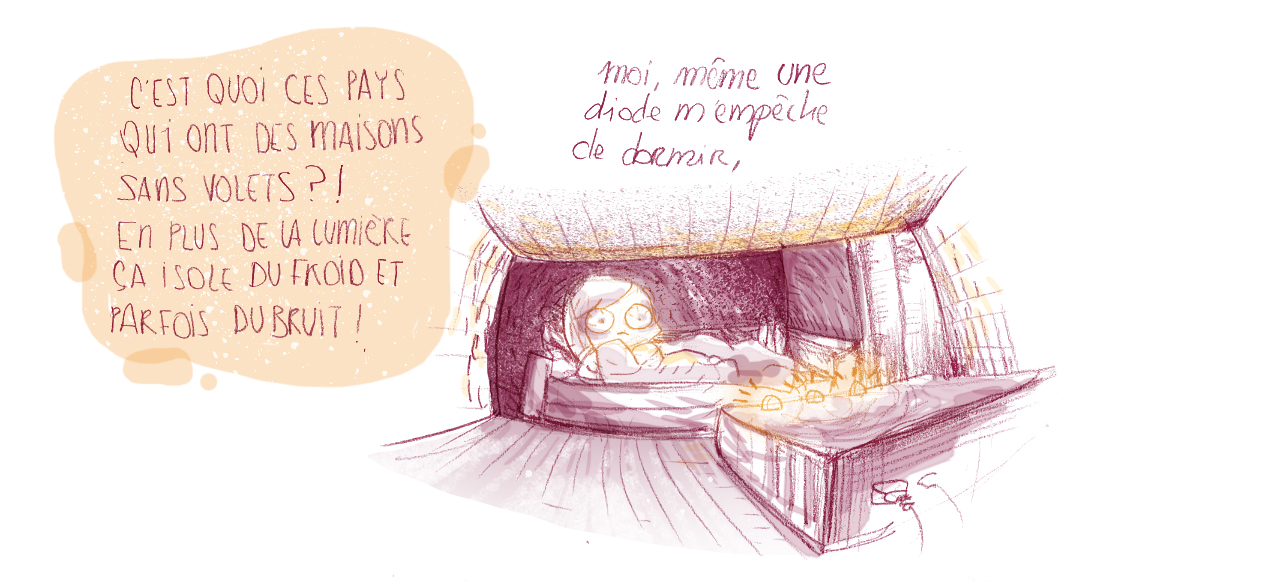 C'EST QUOI CES PAYS
QUI ONT DES MAISONS
SANS VOLETS ? !
EN PLUS DE LA LUMIÈRE
ÇA ISOLE DU FROID ET
PARFOIS DU BRUIT !
moi, même une
diode m'empêche
de dormir,